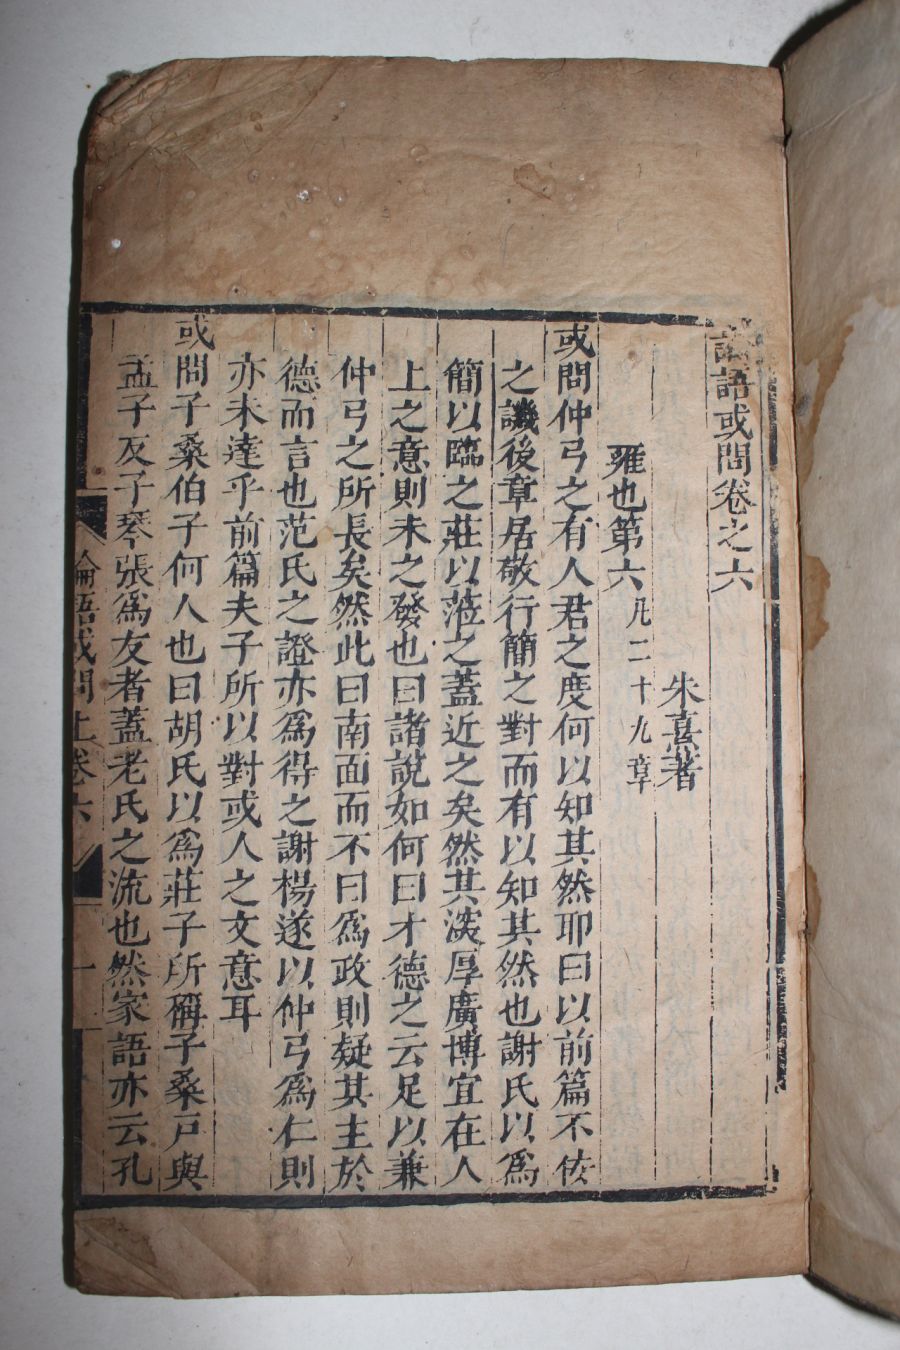 論語或問卷之六
朱熹著
雍也第六 凡二十九章
或問仲弓之有人君之度何以知其然耶曰以前篇不佞
之譏後章居敬行簡之對而有以知其然也謝氏以爲
簡以臨之莊以蒞之蓋近之矣然其淡厚廣博宜在人
上之意則未之發也曰諸說如何曰才德之云足以兼
仲弓之所長矣然此曰南面而不曰爲政則疑其主於
德而言也范氏之證亦爲得之謝楊遂以仲弓爲仁則
亦未達乎前篇夫子所以對或人之文意耳
或問子桑伯子何人也曰胡氏以爲莊子所稱子桑戶與
孟子反子琴張爲友者蓋老氏之流也然家語亦云孔
論語或問上卷六 一